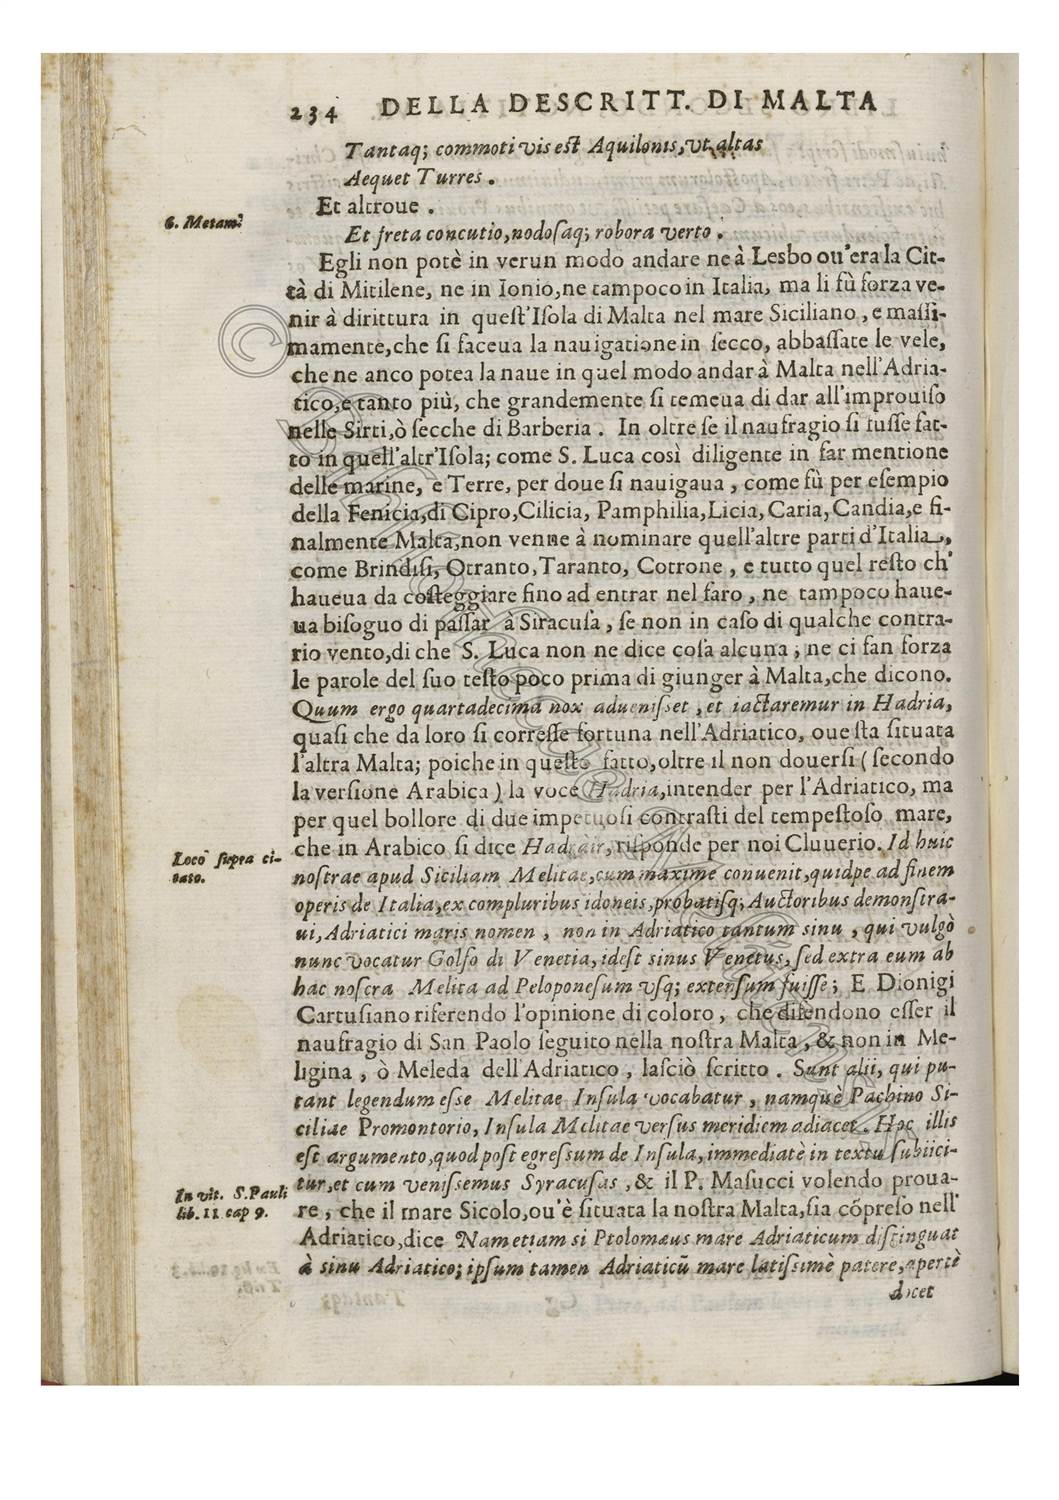 234 DELLA DESCRITT. DI MALTA
Tantaq; commoti vis est Aquilonis, vt altas
Aequet Turres.
Et altroue.
6. Metam?
Et freta concutio, nodoſaq; robora verto.
Egli non potè in verun modo andare ne à Lesbo ou'era la Cit-
tà di Mitilene, ne in Ionio, ne tampoco in Italia, ma li fù forza ve-
nir à dirittura in queſt'Iſola di Malta nel mare Siciliano, e maſſi-
mamente, che ſi faceua la nauigatione in ſecco, abbaſſate le vele,
che ne anco potea la naue in quel modo andar à Malta nell'Adria-
tico, e tanto più, che grandemente ſi temeua di dar all'improuiſo
nelle Sirti, ò ſecche di Barberia. In oltre ſe il naufragio ſi fuſſe fat-
to in quell'altr'Iſola; come S. Luca così diligente in far mentione
delle marine, e Terre, per doue ſi nauigaua, come fù per eſempio
della Fenicia, di Cipro, Cilicia, Pamphilia, Licia, Caria, Candia, e fi-
nalmente Malta, non venne à nominare quell'altre parti d'Italia,
come Brindiſi, Otranto, Taranto, Cotrone, e tutto quel reſto ch'
haueua da coſteggiare fino ad entrar nel faro, ne tampoco haue-
ua biſoguo di paſſar à Siracuſa, ſe non in caſo di qualche contra-
rio vento, di che S. Luca non ne dice coſa alcuna; ne ci fan forza
le parole del ſuo teſto poco prima di giunger à Malta, che dicono.
Quum ergo quartadecima nox adueniſſet, et iactaremur in Hadria,
quaſi che da loro ſi correſſe fortuna nell'Adriatico, oue ſta ſituata
l'altra Malta; poiche in queſto fatto, oltre il non douerſi (ſecondo
la verſione Arabica) la voce Hadria, intender per l'Adriatico, ma
per quel bollore di due impetuoſi contraſti del tempeſtoſo mare,
che in Arabico ſi dice riſponde per noi Cluuerio. Id huic
Loco ſupra ci-
tato.
noſtrae apud Siciliam Melitae, cum maxime conuenit, quidpe ad finem
operis de Italia, ex compluribus idoneis, probatiſq; Auctoribus demonſtra-
ui, Adriatici maris nomen, non in Adriatico tantum sinu, qui vulgò
nunc vocatur Golfo di Venetia, ideſt sinus Venetus, ſed extra eum ab
hac noſtra Melita ad Peloponeſum vſq; extenſum fuiſſe; E Dionigi
Cartuſiano riferendo l'opinione di coloro, che difendono eſſer il
naufragio di San Paolo ſeguito nella noſtra Malta, & non in Me-
ligina, ò Meleda dell'Adriatico, laſciò ſcritto. Sunt alii, qui pu-
tant legendum eſse Melitae Inſula vocabatur, namquè Pachino Si-
ciliae Promontorio, Inſula Melitae verſus meridiem adiacet. Hoc illis
eſt argumento, quod poſt egreſſum de Inſula, immediatè in textu ſubiici-
tur, et cum veniſſemus Syracuſas, & il P. Maſucci volendo proua-
In vit. S. Pauli
lib. 11 cap 9.
re, che il mare Sicolo, ou'è ſituata la noſtra Malta, ſia cõpreſo nell'
Adriatico, dice Nam etiam si Ptolomæus mare Adriaticum diſtinguat
à sinu Adriatico; ipſum tamen Adriaticũ mare latiſſimè patere, apertè
dicet